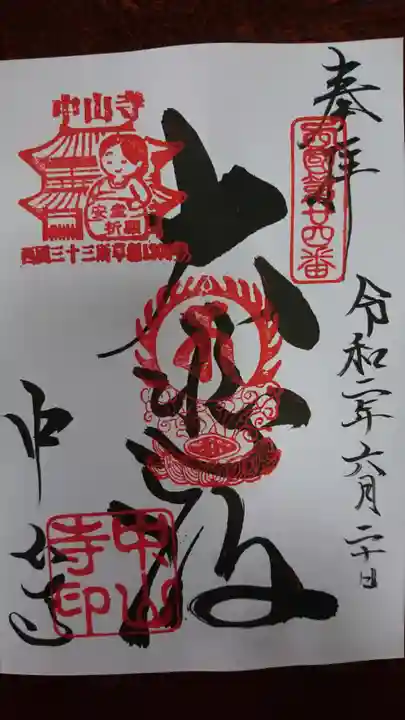 奉拝
西国第廿四番
令和二年六月二十日
大悲殿
中山寺
安産
祈願
西国三十三所草創1300年
中山寺
中山寺印